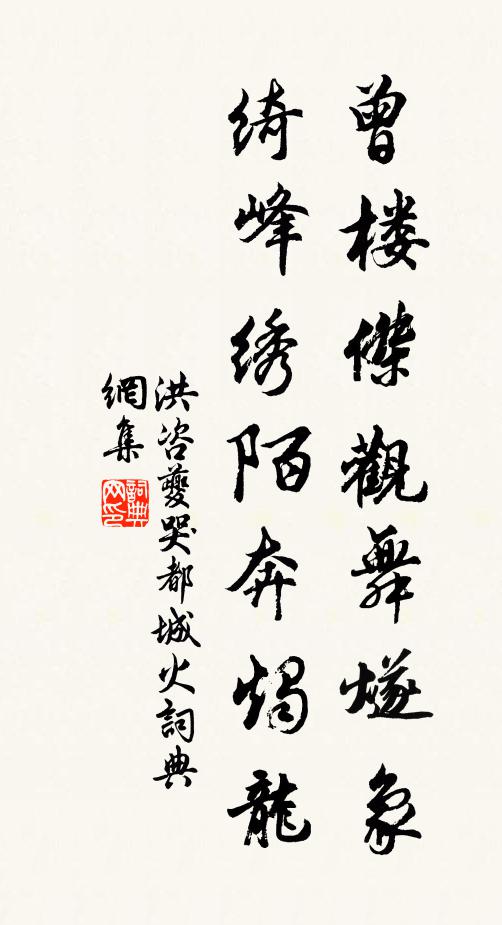 曾楼傑觀舞燧象
綺峰綉陌奔燭龍
洪咨夔哭都城火詞典
網集
詞典
网印